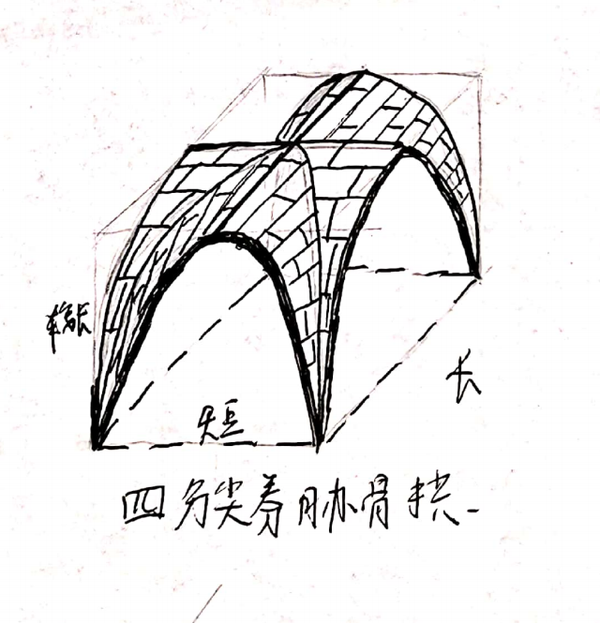 较长
长
短
四分尖券肋骨拱-